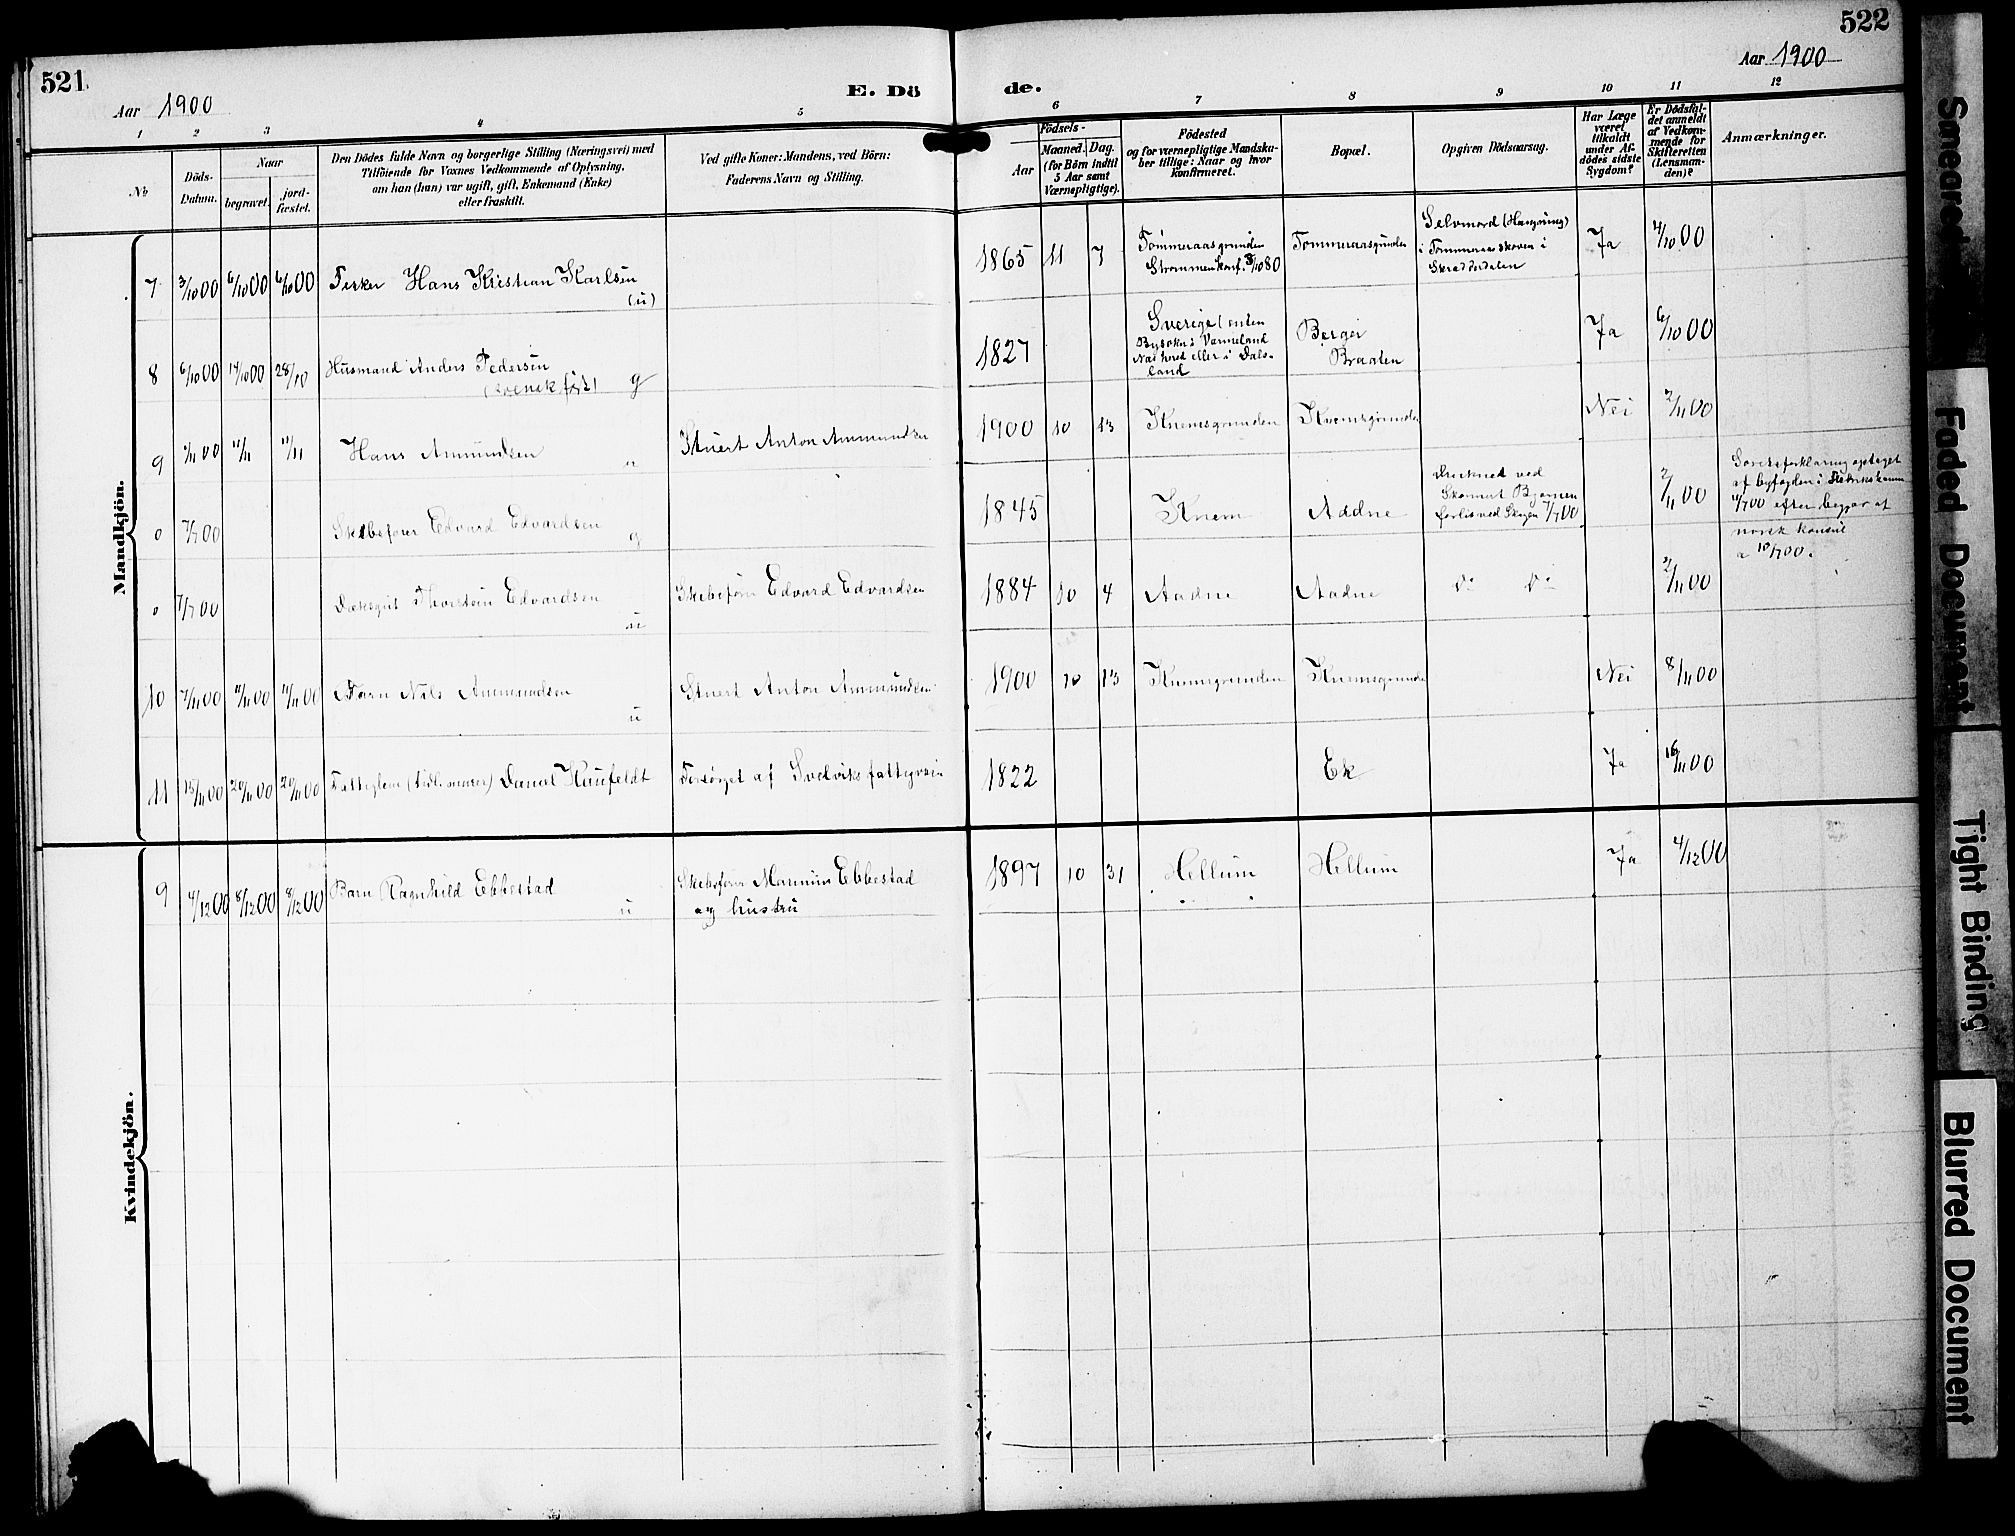 521
522
Aar 1900
Aar 1900
E. Dö
de.
1 2 3 4 5
6 7 8 9 10 11 12
No
Döds-
Datum.
Naar
begravet.
jord-
fæstet.
Den Dödes fulde Navn og borgerlige Stilling (Næringsvei) med
Tilföiende for Voxnes Vedkommende af Oplysning,
om han (hun) var ugift, gift, Enkemand (Enke)
eller fraskilt.
Ved gifte Koner: Mandens, ved Börn:
Faderens Navn og Stilling.
Födsels-
Aar
Maaned. Dag.
(for Börn indtil
5 Aar samt
Værnepligtige).
Födested
og for værnepligtige Mandska-
ber tillige: Naar og hvor
konfirmeret.
Bopæl.
Opgiven Dödsaarsag.
Har Læge
været
tilkaldt
under Af-
dödes sidste
Sygdom?
Er Dödsfal-
det anmeldt
af Vedkom-
mende for
Skifteretten
(Lensman-
den)?
Anmærkninger.
Mandkjön.
7 3/10 00 6/10 00 6/10 00 Fisker Hans Kristian Karlsen
(u)
1865 11 7 Tømmeraasgrunden
Strømmen konf. 3/10 80
Tømmeraasgrunden
Selvmord (Hængning)
i Tømmeraasskoven i
Skræddердalen
Ja 4/10 00
8 6/10 00 14/10 00 28/10 Husmand Anders Pedersen
(svensk født) g
1827 Sverige (enten
Bysokn i Værmeland
Nas hred eller i Dals-
land
Berger
Braaten
Ja 6/10 00
9 2/11 00 11/11 11/11 Hans Ammundsen u
Stuert Anton Ammundsen
1900 10 13 Knemsgrunden Knemsgrunden Nei 2/11 00
0 7/7 00 Skibsfører Edvard Edvardsen g
1845 Knem Aadne
Druknet ved
Skonnert Bjørnen
forlis ved Skagen 7/7 00
2/11 00
Søreksforklaring optaget
af byfogden i Frederikshavn
11/7 00 efter begjær af
norsk konsul
a 10/7 00.
0 7/7 00 Dæksgut Thorstein Edvardsen u
Skibsfører Edvard Edvardsen
1884 10 4 Aadne Aadne Do Do 2/11 00
10 7/11 00 11/11 00 11/11 00 Barn Nils Ammundsen u
Stuert Anton Ammundsen
1900 10 13 Knemsgrunden Knemsgrunden Nei 8/11 00
11 15/11 00 20/11 00 20/11 00 Fattiglem Daniel Kaufeldt
Forsørget af Svelviks fattigvæsen
1822 Ek Ja 16/11 00
Kvindekjön.
9 4/12 00 8/12 00 8/12 00 Barn Ragnhild Ebbestad u
Skibsfører Marinius Ebbestad
og hustru
1897 10 31 Hellum Hellum Ja 4/12 00
Smeared
Faded Document
Tight Binding
Blurred Document